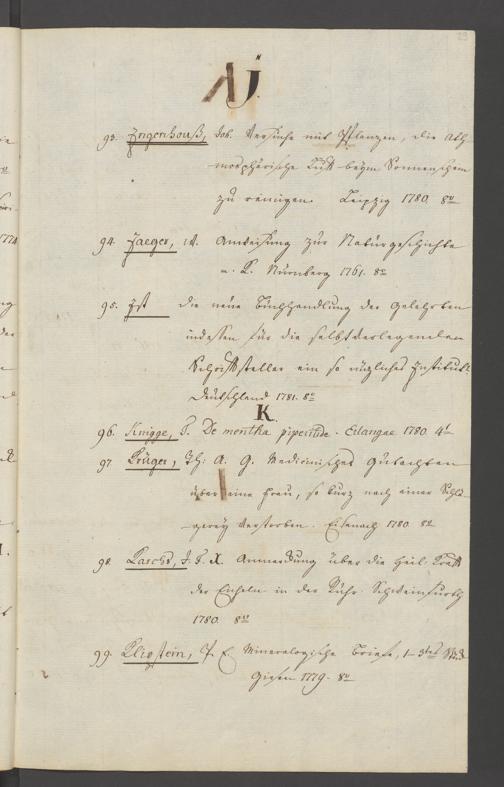 J.
93. Ingenhouß, Joh. Versuche mit Pflanzen, die Ath
mosphärische Luft beym Sonnenschein
zu reinigen. Leipzig 1780. 8°
94. Jaeger, Anweisung zur Naturgeschichte
Nürnberg 1761. 8°
95. Ist die neue Buchhandlung der Gelehrten
indessen für die selbstverlegenden
Schriftsteller ein so nüzliches Institut.
Deutschland 1781. 8°
K.
96. Knigge, T. De mentha piperitide. Erlangae 1780. 4°
97 Krüger, Th: A. G. Medicinisches Gutachten
über eine Frau, so kurz nach einer Schlä-
gerey verstorben. Eisenach 1780. 8°
98. J. F. X. Anmerkung über die heil. Kraft
der Eicheln in der Ruhr. Schweinfurth
1780. 8°
99. Klipstein, P. E. Mineralogische Briefe, 1-3tes
Giesen 1779. 8°